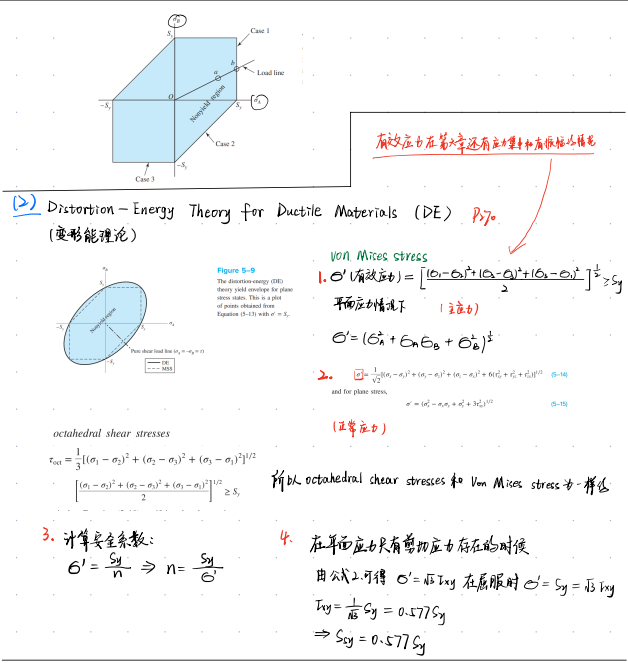 σ_B
S_y
Case 1
b
a
Load line
O
−S_y
S_y
σ_A
Nonyield region
−S_y
Case 2
Case 3
有效应力在第六章还有应力集中和有振幅的情况
(2) Distortion-Energy Theory for Ductile Materials (DE) P270
(变形能理论)
Von Mises stress
Figure 5–9
The distortion-energy (DE)
theory yield envelope for plane
stress states. This is a plot
of points obtained from
Equation (5–13) with σ′ = S_y.
σ_B
S_y
−S_y
S_y
σ_A
Nonyield region
−S_y
Pure shear load line (σ_A = −σ_B = τ)
DE
MSS
1. σ′(有效应力) = [((σ₁−σ₂)²+(σ₂−σ₃)²+(σ₃−σ₁)²)/2]^(1/2) ≥ Sy
平面应力情况下 (主应力)
σ′=(σ_A² + σ_A σ_B + σ_B²)^(1/2)
2. σ′ = 1/√2 [(σ_x − σ_y)² + (σ_y − σ_z)² + (σ_z − σ_x)² + 6(τ_xy² + τ_yz² + τ_zx²)]^(1/2) (5–14)
and for plane stress,
σ′ = (σ_x² − σ_xσ_y + σ_y² + 3τ_xy²)^(1/2) (5–15)
(正常应力)
octahedral shear stresses
τ_oct = 1/3[(σ₁ − σ₂)² + (σ₂ − σ₃)² + (σ₃ − σ₁)²]^(1/2)
[((σ₁ − σ₂)² + (σ₂ − σ₃)² + (σ₃ − σ₁)²)/2]^(1/2) ≥ S_y
所以 octahedral shear stresses 和 Von Mises stress 为一样的
3. 计算安全系数:
σ′ = Sy/n ⇒ n= Sy/σ′
4. 在平面应力只有剪切应力存在的时候
由公式2.可得 σ′=√3 τxy 在屈服时 σ′= Sy = √3 τxy
τxy = 1/√3 Sy = 0.577 Sy
⇒ Ssy = 0.577 Sy